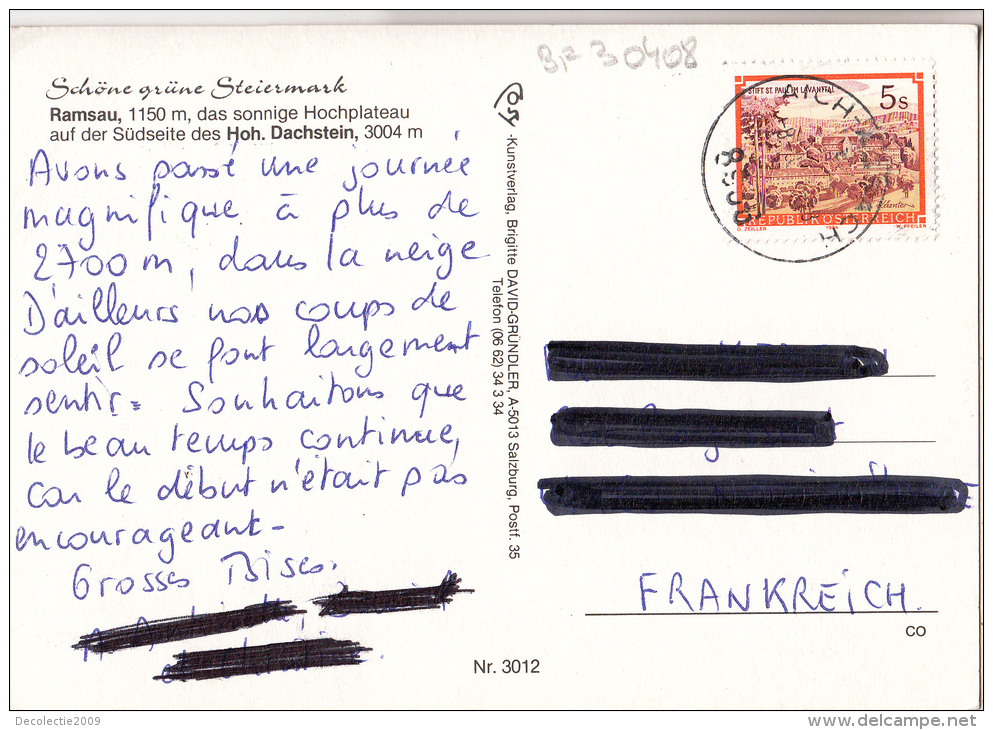 BF 30408
Schöne grüne Steiermark
Ramsau, 1150 m, das sonnige Hochplateau
auf der Südseite des Hoh. Dachstein, 3004 m
Avons passé une journée
magnifique à plus de
2700 m, dans la neige
D'ailleurs nos coups de
soleil se font largement
sentir. Souhaitons que
le beau temps continue,
car le début n'était pas
encourageant-
Grosses Bises.
-Kunstverlag, Brigitte DAVID-GRÜNDLER, A-5013 Salzburg, Postf. 35
Telefon (06 62) 34 3 34
STIFT ST. PAUL IM LAVANTTAL
5s
REPUBLIK ÖSTERREICH
O. ZEILER
W. PFEILER
FRANKREICH.
CO
Nr. 3012
Decolectie2009
www.delcampe.net